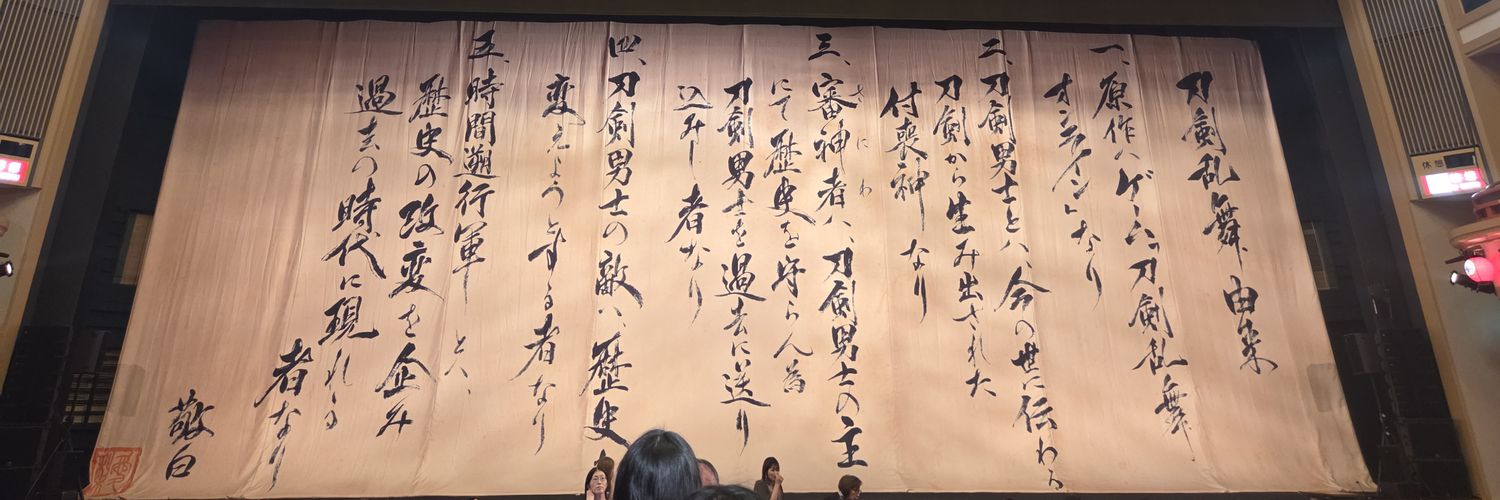 刀剣乱舞 由来
一、原作ハゲーム「刀剣乱舞
オンライン」なり
二、刀剣男士とハ、今の世に伝わる
刀剣から生み出された
付喪神なり
三、審神者ハ、刀剣男士の主
さにわ
にて歴史を守らん為
刀剣男士を過去に送り
込みし者なり
四、刀剣男士の敵ハ、歴史
変えようとする者なり
五、時間遡行軍とハ、
歴史の改変を企み
過去の時代に現れる
者なり
敬白
休憩